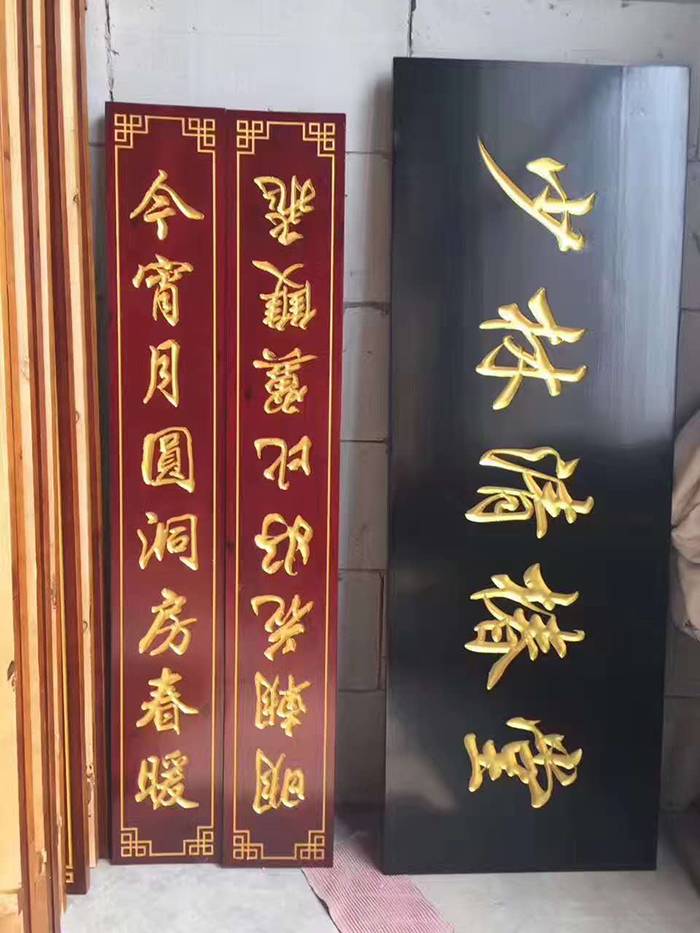 今宵月圓洞房春暖
明朝花好比翼雙飛
少林清堂